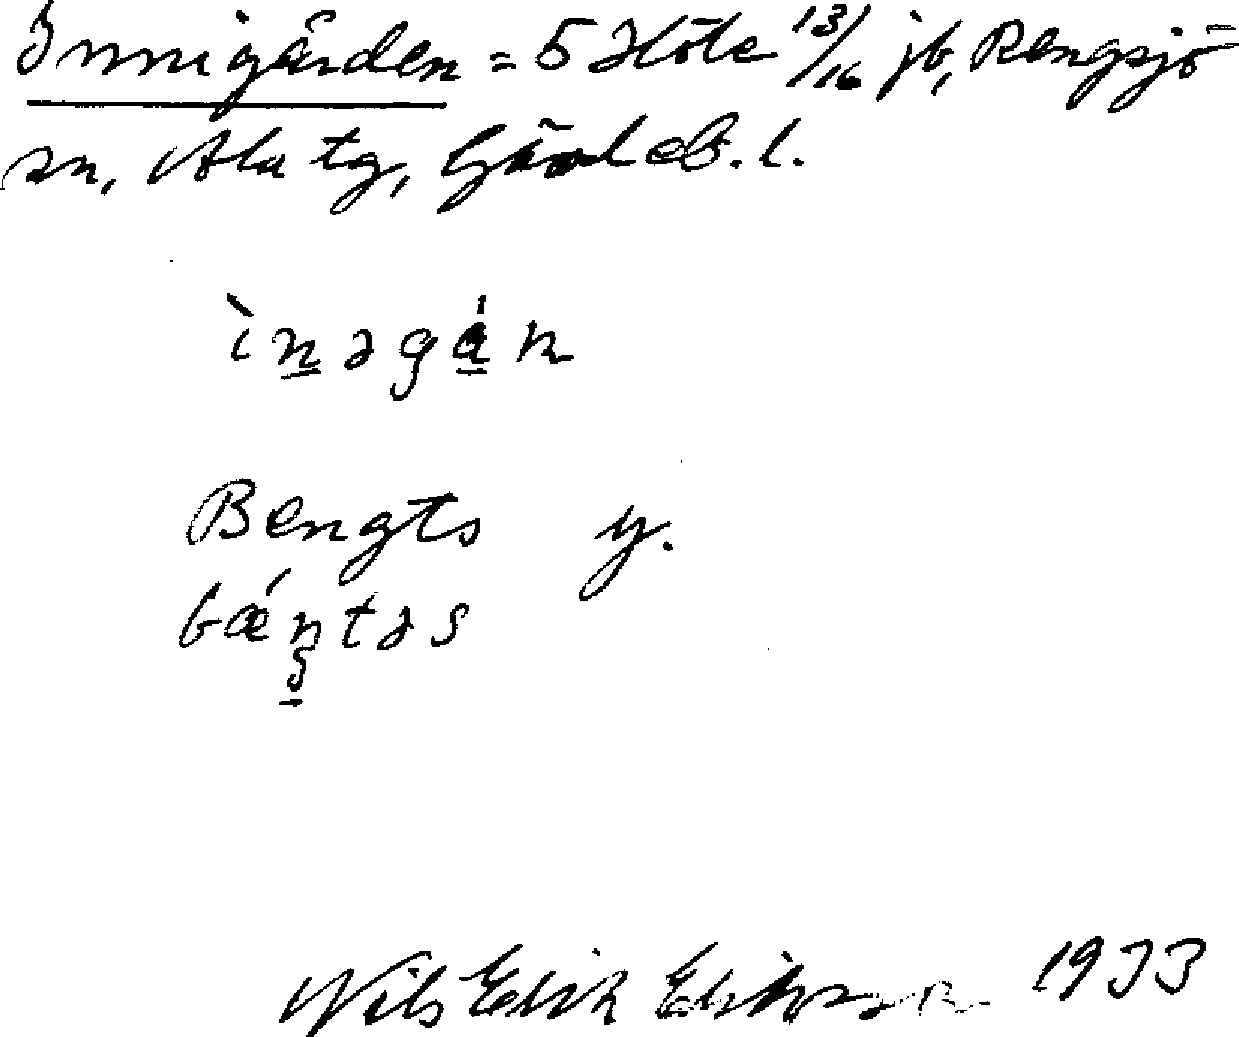 Innigården = 5 Höle 13/16 jb, Rengsjö
sn, Ala tg, Gävleb. l.
ìnəgán
Bengts y.
bǽntəs
Nils Erik Eriksson 1933